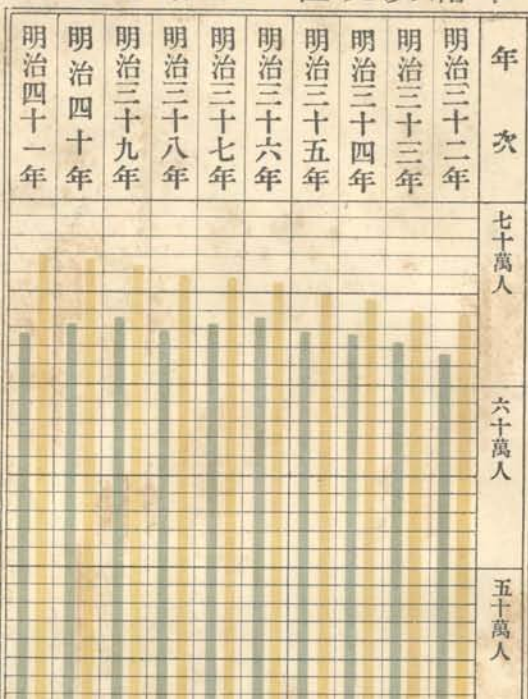 年次
明治三十二年
明治三十三年
明治三十四年
明治三十五年
明治三十六年
明治三十七年
明治三十八年
明治三十九年
明治四十年
明治四十一年
七十萬人
六十萬人
五十萬人